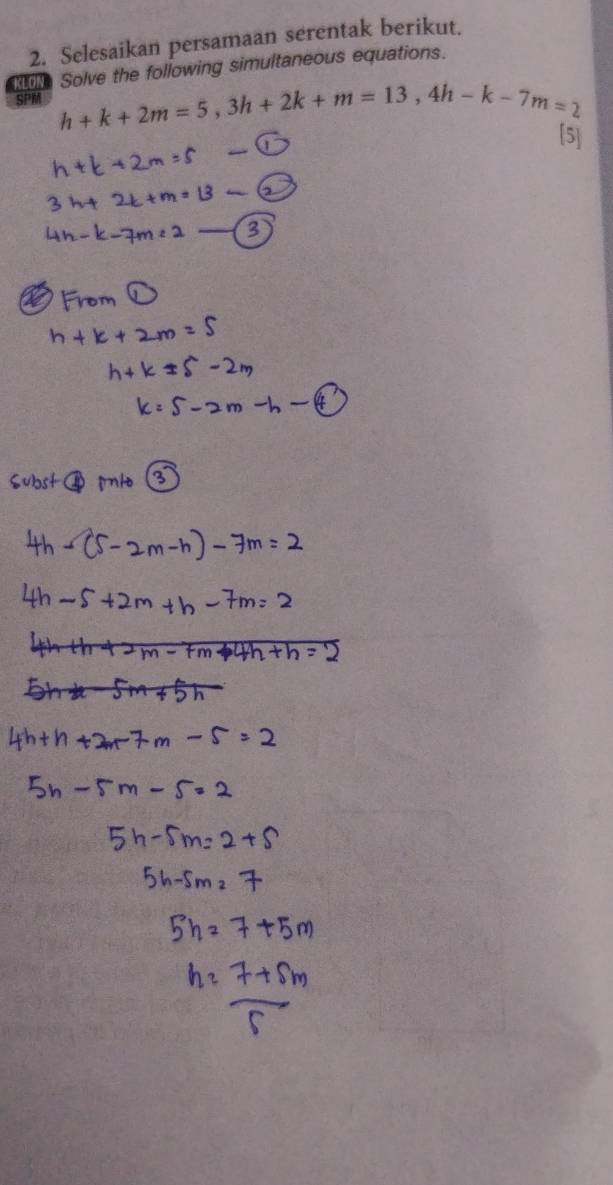 2. Selesaikan persamaan serentak berikut.
KLON SPM Solve the following simultaneous equations.
h + k + 2m = 5 , 3h + 2k + m = 13 , 4h – k – 7m = 2
[5]
h+k+2m=5 — ①
3h+ 2k+m=13 — ②
4h-k-7m=2 — ③
From ①
h+k+2m=5
h+k=5-2m
k=5-2m-h — ④
Subst ④ into ③
4h-(5-2m-h)-7m=2
4h-5+2m+h-7m=2
4h+h+2m-7m+4h+h=2
5h-5m+5h
4h+h+2m-7m-5=2
5h-5m-5=2
5h-5m=2+5
5h-5m=7
5h=7+5m
h=7+5m
5